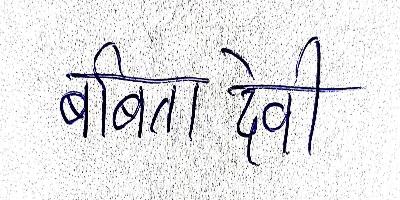 बबिता देवी